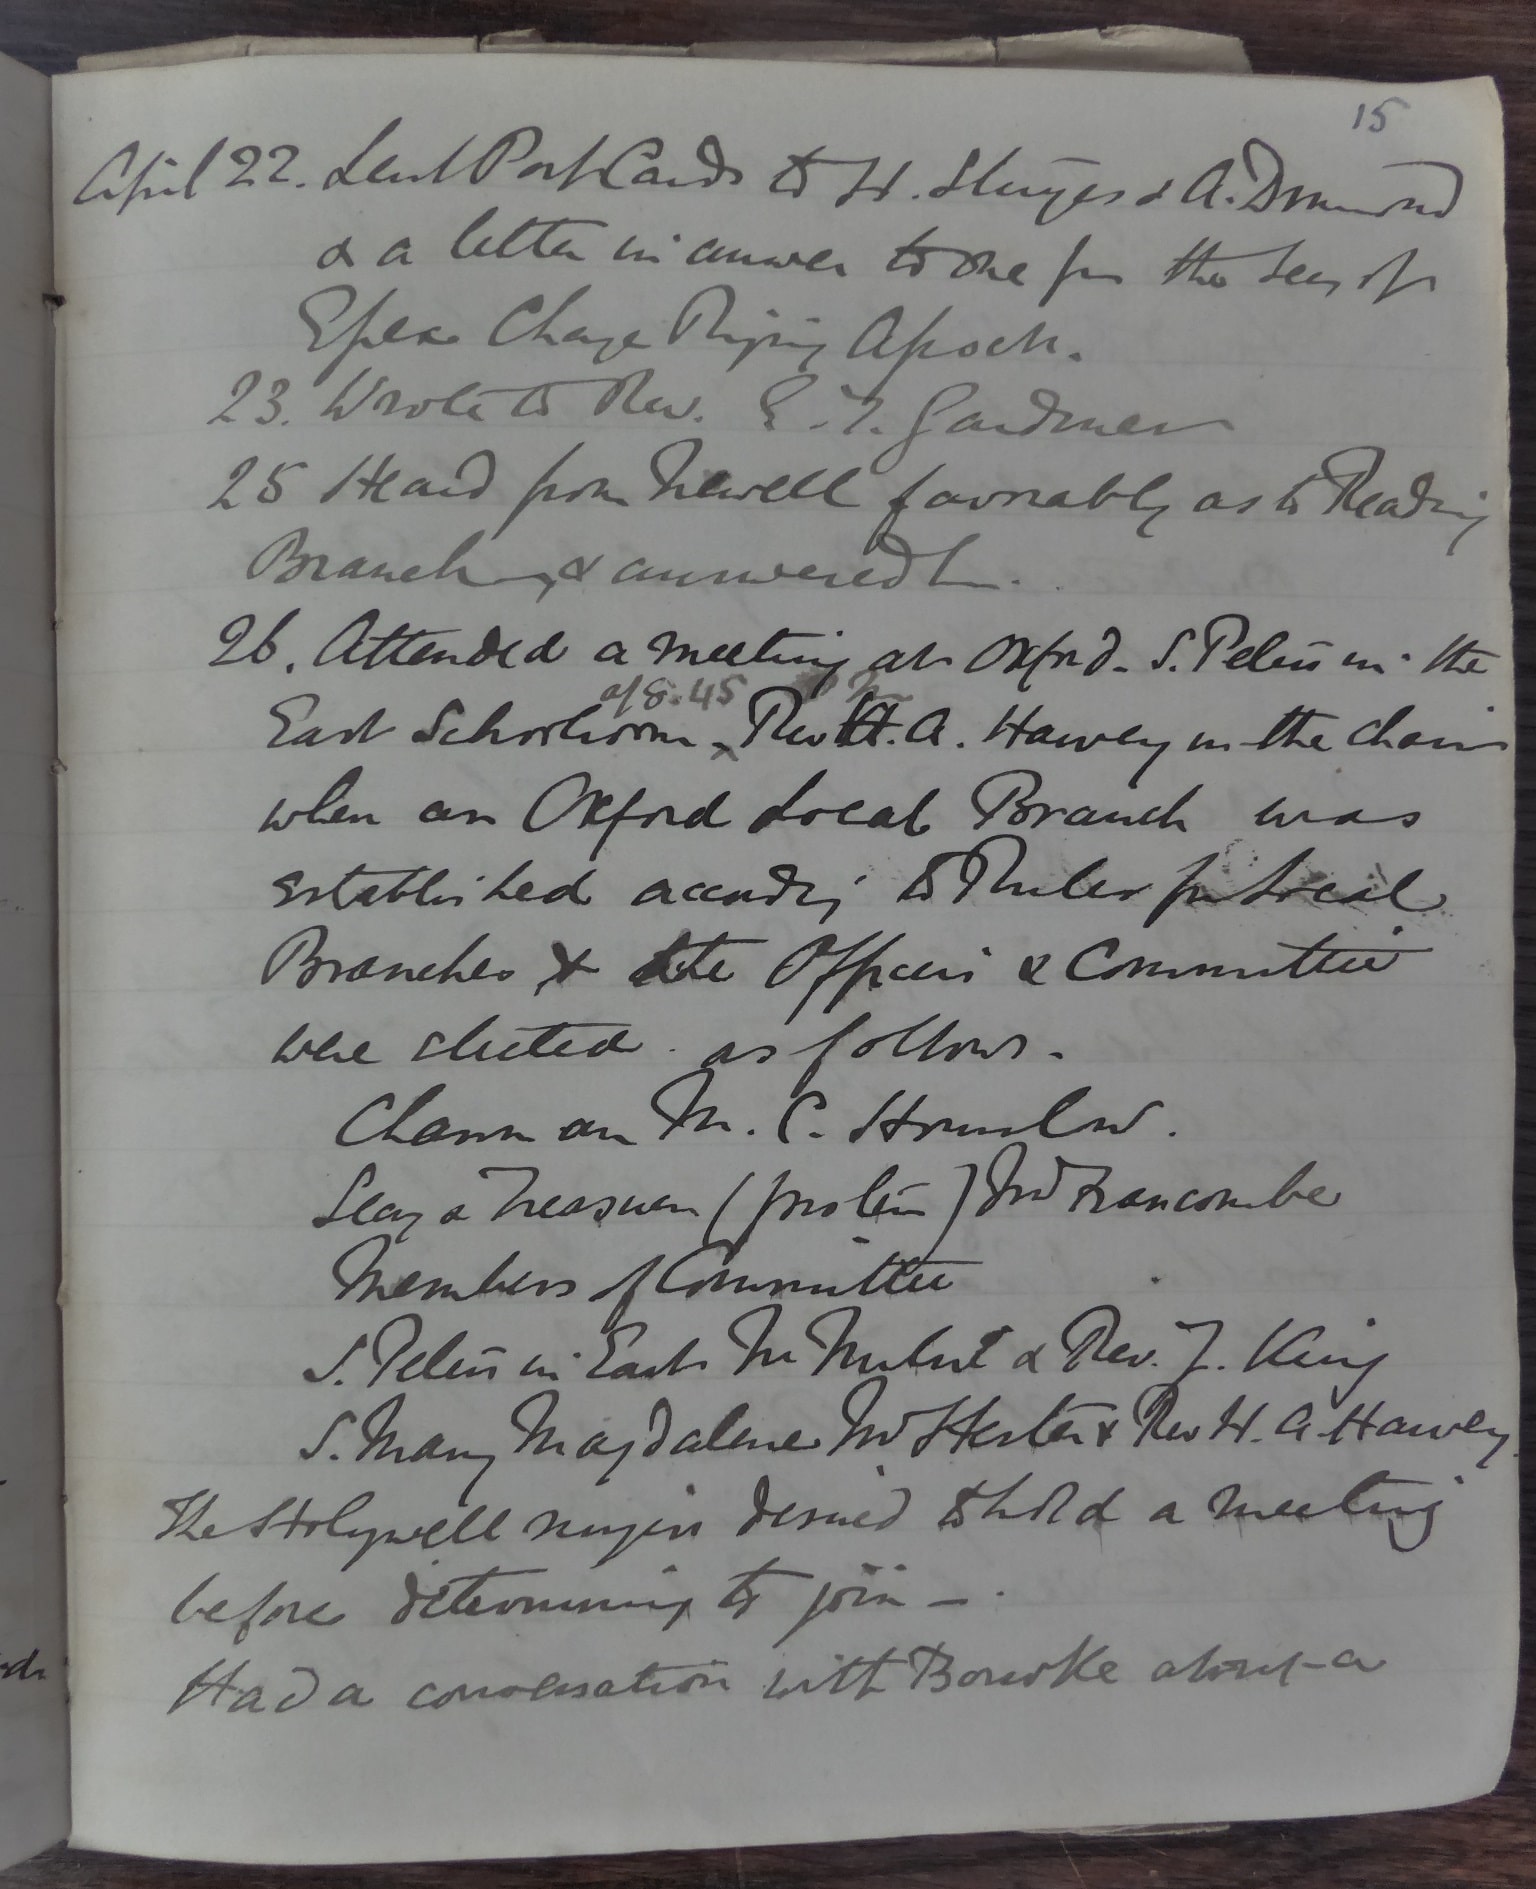 15
April 22. Sent Post Cards to H. Sturges & A. Drummond
& a letter in answer to one fr the Secy of
Essex Change Ringing Assocn.
23. Wrote to Rev. E. T. Gardiner
25 Heard from Newell favorably as to Reading
Branch, & answered
26. Attended a meeting at Oxford. S. Peters in the
at 8.45
East Schoolroom. Rev H. A. Harvey in the chair
when an Oxford Local Branch was
established according to Rules for Local
Branches & the Officers & Committee
were elected as follows.
Chairman Mr. C. Hounslow.
Secy & Treasurer (pro tem) Mr Francombe
Members of Committee
S. Peters in East Mr & Rev. J. King
S. Mary Magdalene Mr Hester & Rev H. A. Harvey.
The Holywell ringers desired to hold a meeting
before determining to join –.
Had a conversation with Bourke about a